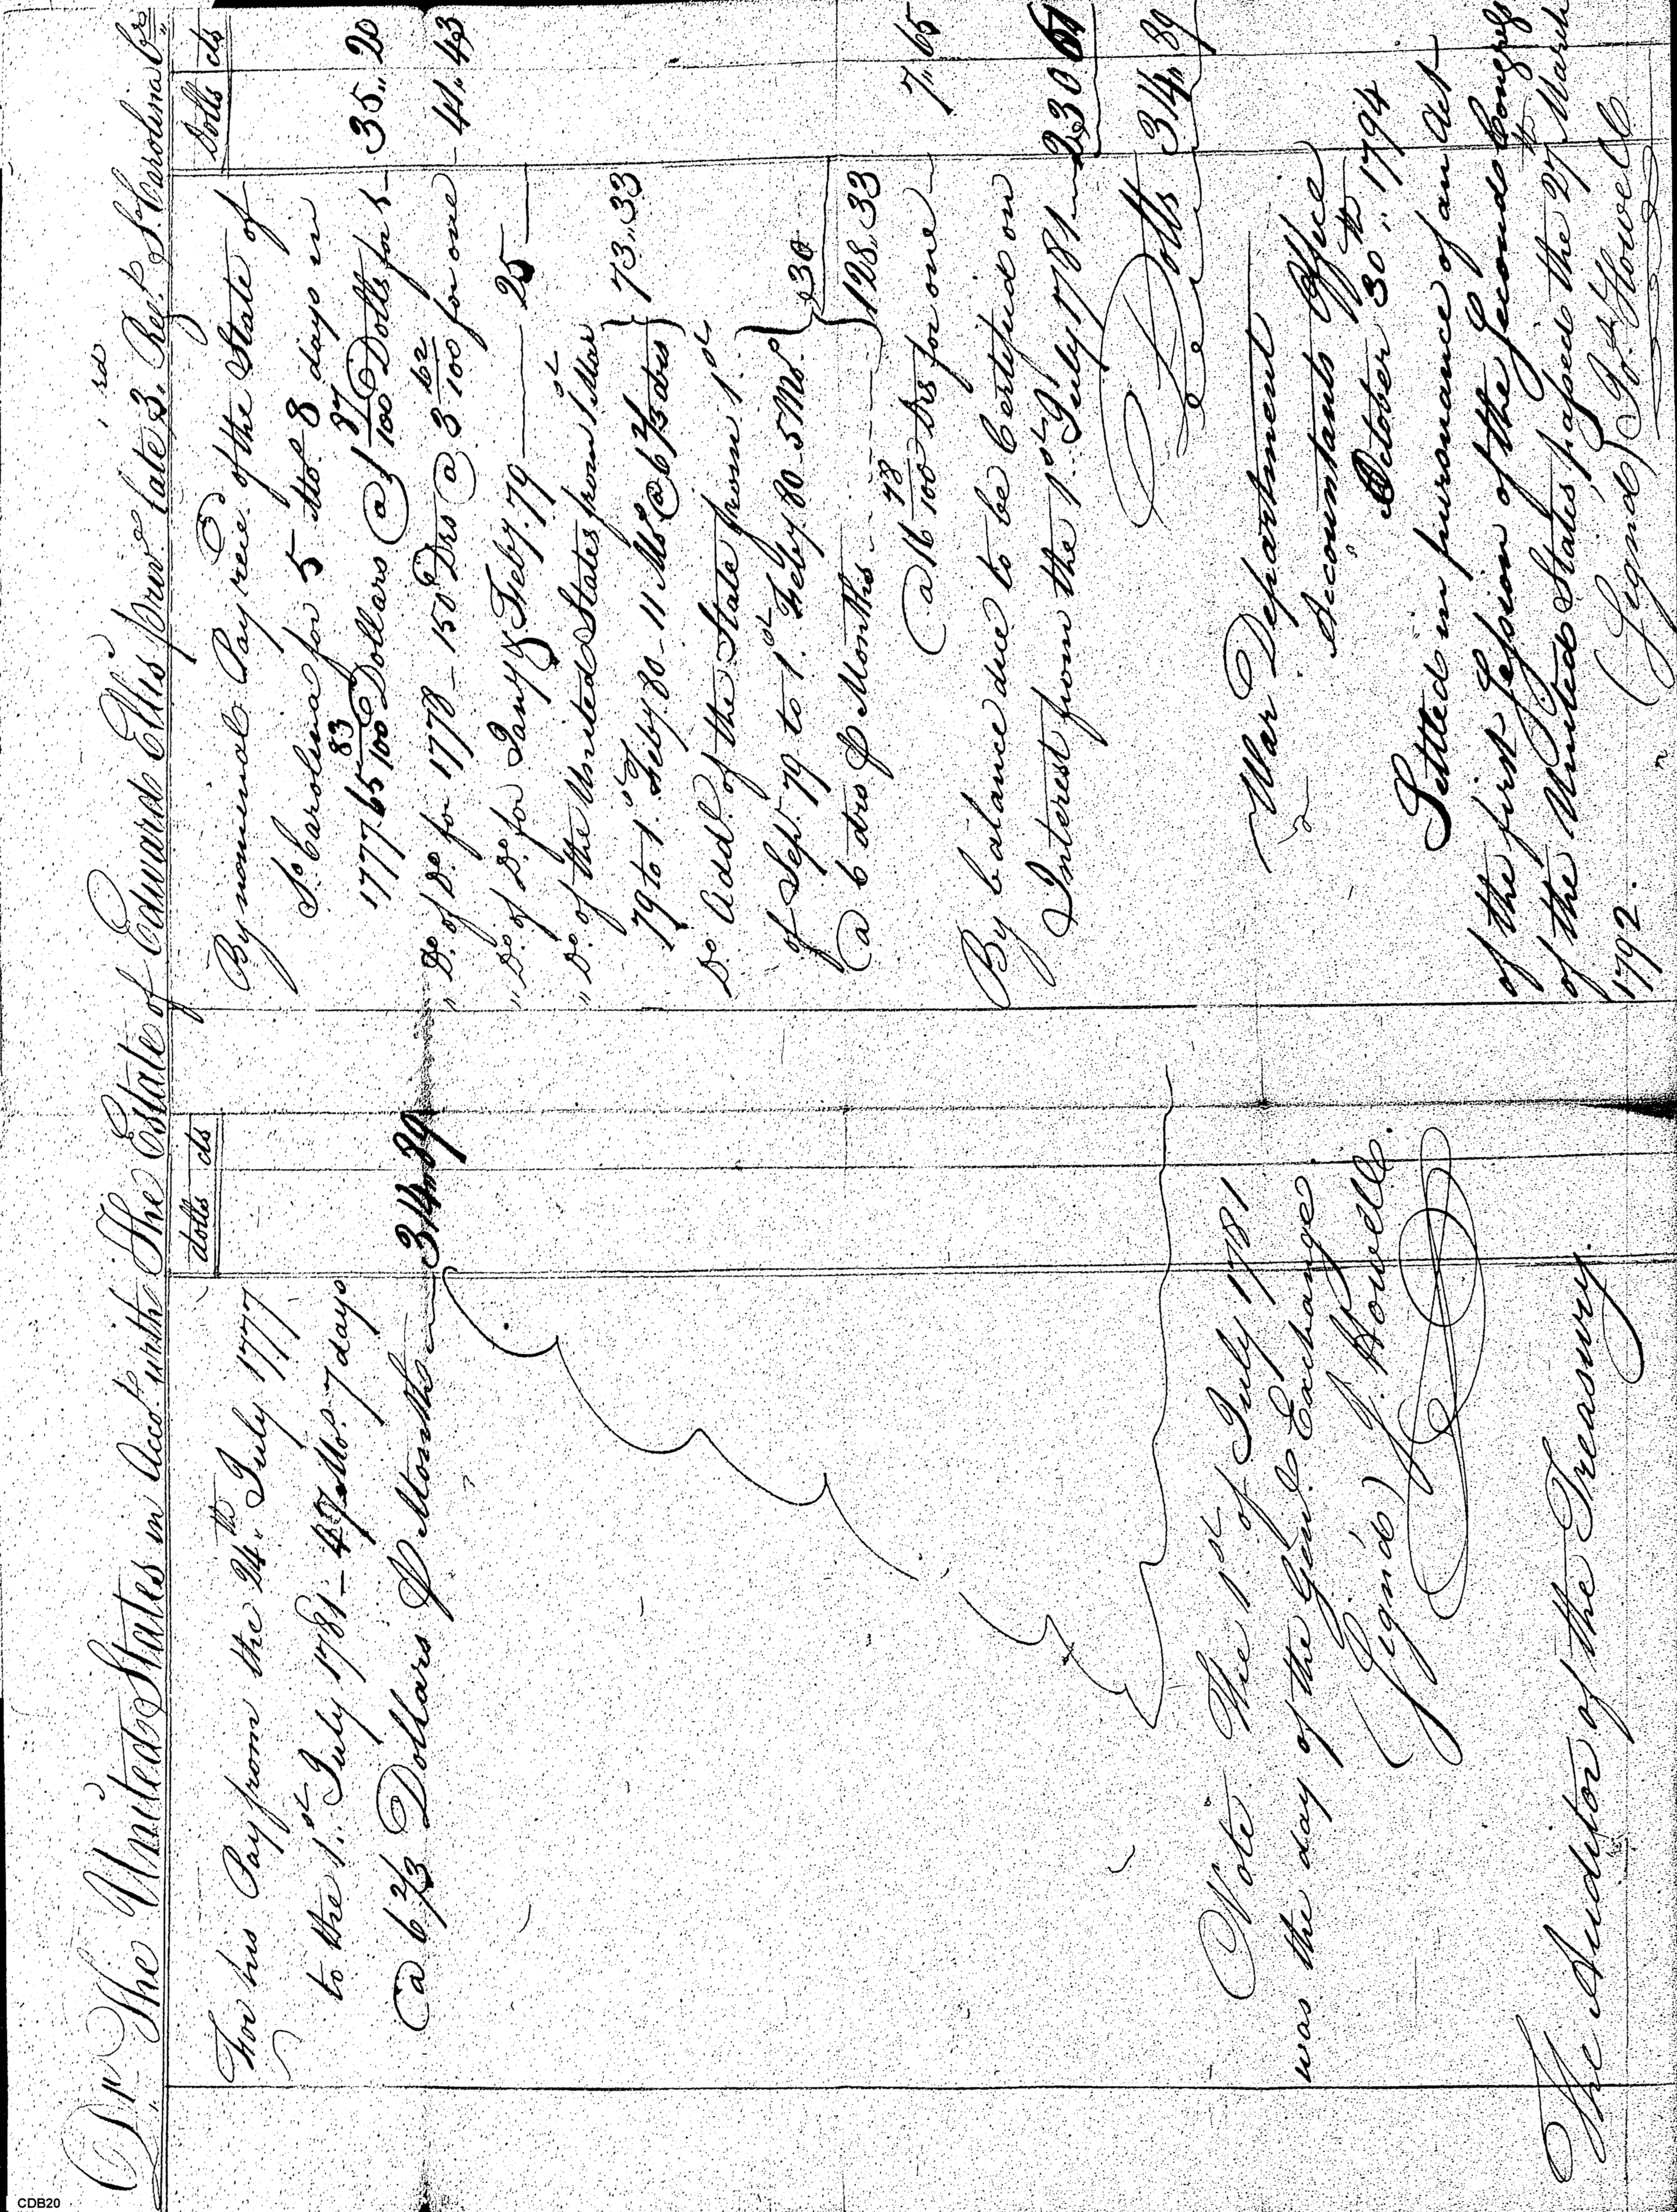 Dr. The United States in Acco.t with The Estate of Edward Ellis priv.t late 3.rd Reg.t S.o Carolina Cr.
dolls cts
For his Pay from the 24.th July 1777
to the 1.st July 1781 – 47 Mo.s 7 days
@ 6 2/3 Dollars ℔ Month 314„89
Note The 1.st of July 1781
was the day of the Gen.l Exchange
(Sign'd) J. Howell.
The Auditor of the Treasury.
Dolls cts
By nominal Pay rec.d of the State of
S.o Carolina for 5 Mo.s 8 days in
1777. 65 83/100 Dollars @ 1 87/100 Dolls for 1 – 35„20
„ D.o of D.o for 1778 – 150 Drs @ 3 62/100 for one – 41„43
„ D.o of D.o for Jany & Feby. 79 — 25 —
„ D.o of the United States from 1.st Mar
79 to 1.st Feby 80 – 11 Mo.s @ 6 2/3 drs } 73„33
D.o Add.l of the State from 1.st
of Sep.t 79 to 1.st Feby. 80 5 Mo.s } 30
@ 6 drs ℔ Month } 128„33
@ 16 78/100 Drs for one – 7„65
By balance due to be Certified on
Interest from the 1.st July 1781 — 230 61
Dolls 314„89
War Department
Accountants Office
October 30.th 1794
Settled in pursuance of an Act
of the first Session of the Second Congress
of the United States passed the 27.th March
1792.
(Signed) Jo.s Howell
CDB20